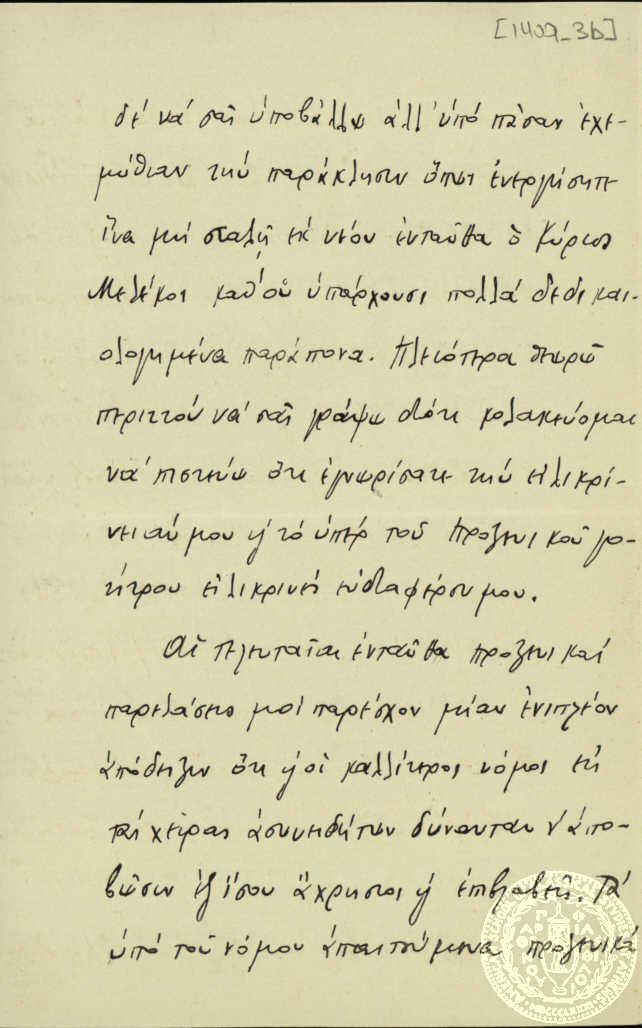 [1409_3b]
δέ νά σᾶς ὑποβάλλω ἀλλ' ὑπό πᾶσαν ἐχε-
μύθιαν τήν παράκλησιν ὅπως ἐνεργήσητε
ἵνα μή σταλῇ ἐκ νέου ἐνταῦθα ὁ Κύριος
καθ' οὗ ὑπάρχουσι πολλά δεδικαι-
ολογημένα παράπονα. Πλειότερα θεωρῶ
περιττόν νά σᾶς γράψω διότι κολακεύομαι
νά πιστεύω ὅτι ἐγνωρίσατε τήν εἰλικρί-
νειάν μου ἤ τό ὑπέρ τοῦ Προξενικοῦ γο-
ήτρου εἰλικρινές ἐνδιαφέρον μου.
Αἱ τελευταῖαι ἐνταῦθα προξενικαί
παρελάσεις μοί παρέσχον μίαν ἐπιπλέον
ἀπόδειξιν ὅτι ἤ οἱ καλλίτεροι νόμοι εἰς
τάς χεῖρας ἀσυνειδήτων δύνανται ν' ἀπο-
βῶσιν ἐξ ἴσου ἄχρηστοι ἤ ἐπιβλαβεῖς. Τά
ὑπό τοῦ νόμου ἀπαιτούμενα προξενικά